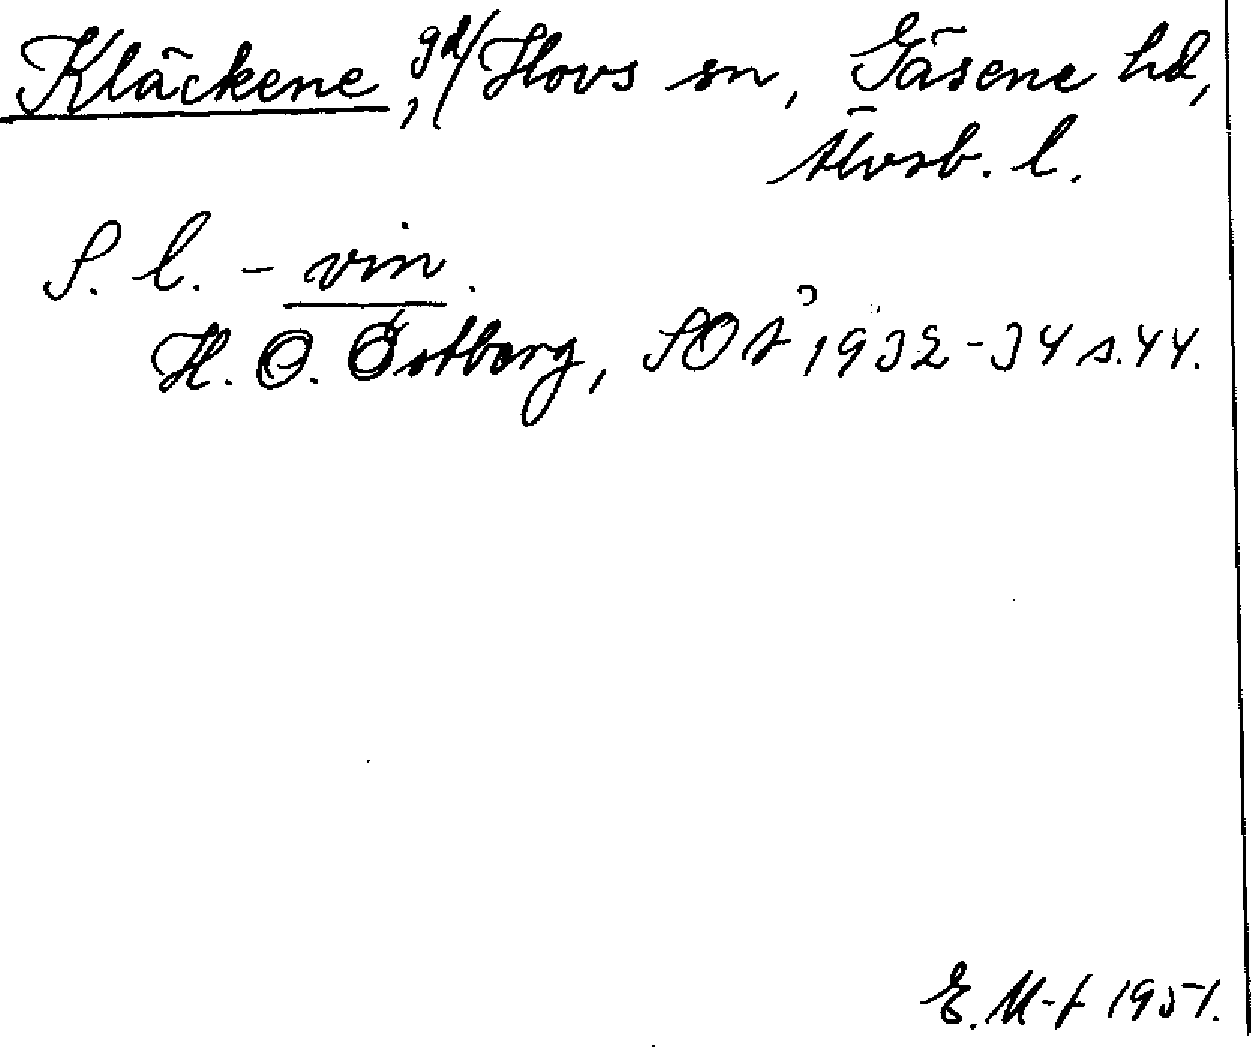 Kläckene, gd/ Hovs sn, Gäsene hd,
Älvsb. l.
S. l. - vin.
H. O. Östberg, SOÅ 1932-34 s. 44.
E. M-f 1951.